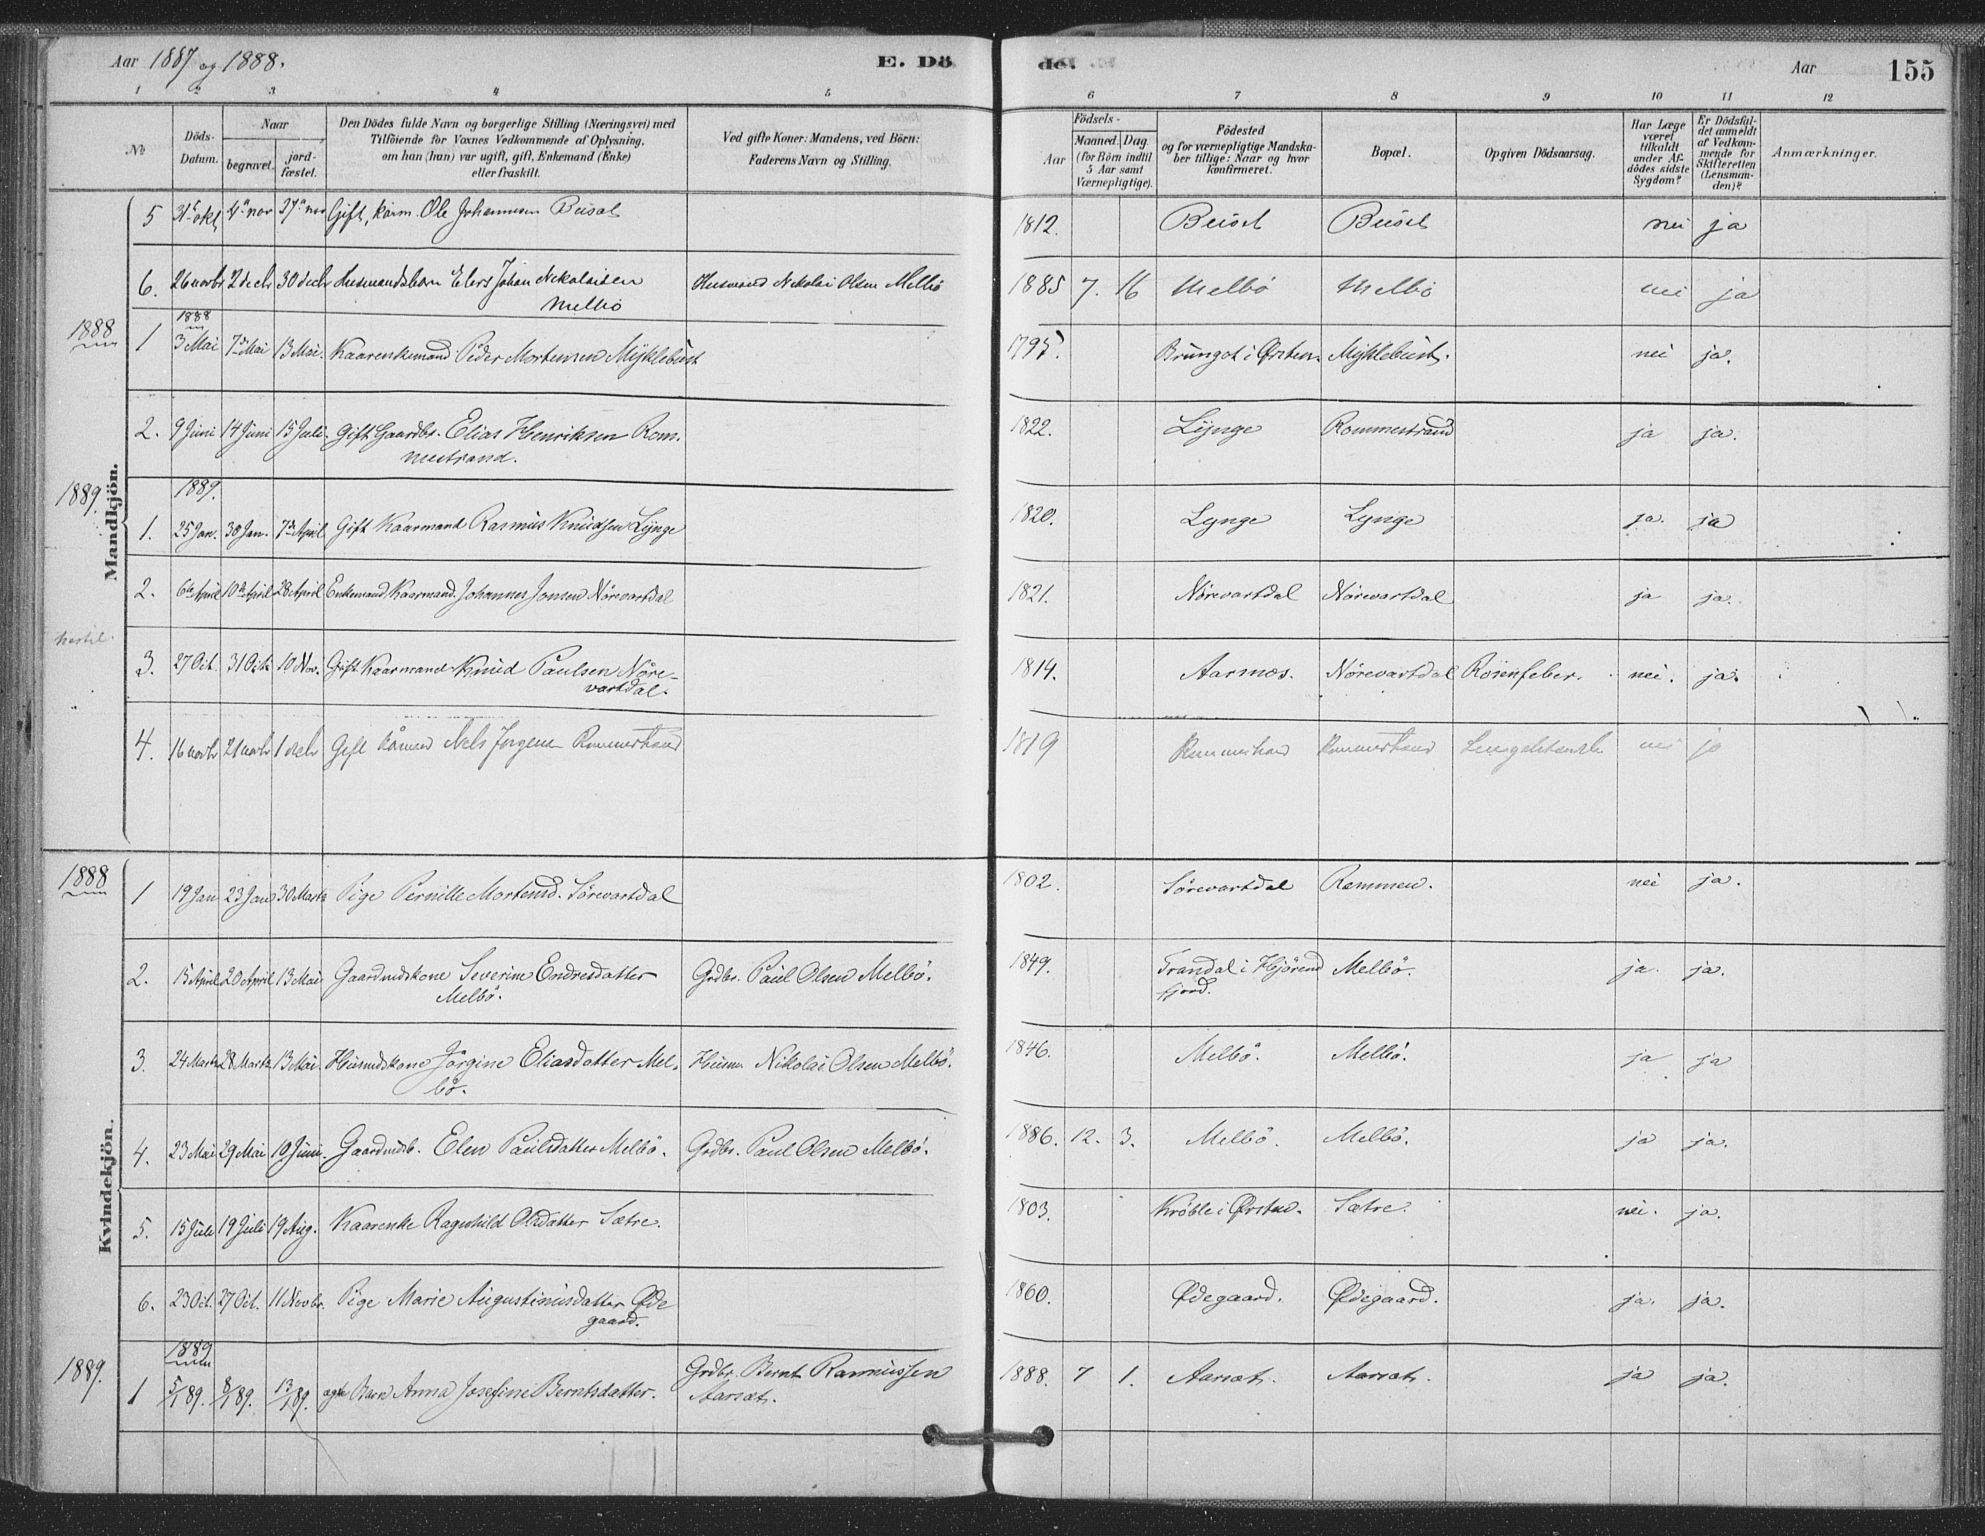 Aar 1887 og 1888. E. Dö de. Aar 155
1 2 3 4 5 6 7 8 9 10 11 12
№ Döds-Datum. Naar begravet. jordfæstet. Den Dödes fulde Navn og borgerlige Stilling (Næringsvei) med Tilföiende for Voxnes Vedkommende af Oplysning, om han (hun) var ugift, gift, Enkemand (Enke) eller fraskilt. Ved gifte Koner: Mandens, ved Börn: Faderens Navn og Stilling. Födsels- Aar Maaned. Dag. (for Börn indtil 5 Aar samt Værnepligtige). Födested og for værnepligtige Mandskaber tillige: Naar og hvor konfirmeret. Bopæl. Opgiven Dödsaarsag. Har Læge været tilkaldt under Afdödes sidste Sygdom? Er Dödsfaldet anmeldt af Vedkommende for Skifteretten (Lensmanden)? Anmærkninger.
Mandkjön.
5 31 okt 4 nov 27 nov Gift, kårm. Ole Johannesen Busæt 1812. Busæt Busæt nei ja
6. 26 novbr 2 decbr 30 decbr Husmandsbarn Elers Johan Nikolaisen Husmand Nikolai Olsen Melbö 1885 7. 16 Melbö Melbö nei ja
Melbö
1888 1888
1 3 Mai 7 Mai 13 Mai. Kaarenkemand Peder Mortensen Myklebust 1795. Brungot i Ørsten. Myklebust. nei ja.
2. 9 Juni 14 Juni 15 Juli. Gift Gaardbr. Elias Henriksen Rom- 1822. Lynge Rommestrand ja ja.
mestrand.
1889. 1889.
1. 25 Jan. 30 Jan. 7de April Gift Kaarmand Rasmus Knudsen Lynge 1820. Lynge Lynge ja. ja
2. 6te April 10de April 28 April Enkemand Kaarmand Johannes Jonsen Nörevartdal 1821. Nörevartdal Nörevartdal ja ja.
hertil.
3. 27 Oct. 31 Oct. 10 Nov. Gift Kaarmand Knud Paulsen Nöre- 1814. Aarnæs. Nörevartdal Rosenfeber. nei. ja.
vartdal.
4. 16 novbr 21 novbr 1 decbr Gift Kårmand Nels Jørgensen Rommestrand 1819 Rommestrand Rommestrand nei ja
Kvindekjön.
1888
1 19 Jan 23 Jan 30 Marts Pige Pernille Mortensd. Sörevartdal 1802. Sörevartdal Remmen. nei ja.
2. 15 April 20 April 13 Mai Gaardmdskone Severine Endresdatter Grdbr. Paul Olsen Melbö. 1849. Trandal i Hjörend Melbö. ja. ja.
Melbö. fjord.
3. 24 Marts 28 Marts 13 Mai. Husmdskone Jörgine Eliasdatter Mel- Husm Nikolai Olsen Melbö. 1846. Melbö. Melbö. ja ja
bö.
4. 23 Mai 29 Mai 10 Juni. Gaardmdsb. Elen Paulsdatter Melbö. Grdbr. Paul Olsen Melbö. 1886. 12. 3. Melbö. Melbö. ja ja.
5. 15 Juli 19 Juli 19 Aug. Kaarenke Ragnhild Olsdatter Sætre. 1803. Kröble i Ørsten. Sætre. nei. ja.
6. 23 Oct. 27 Oct. 11 Novbr. Pige Marie Augustinusdatter Øde 1860. Ødegaard. Ødegaard. ja. ja.
gaard.
1889. 1889
1 5/1 89. 8/1 89. 13/1 89. ægte Barn Anna Josefine Berntsdatter. Grdbr. Bernt Rasmussen 1888. 7 1. Aarsæt. Aarsæt. ja ja.
Aarsæt.